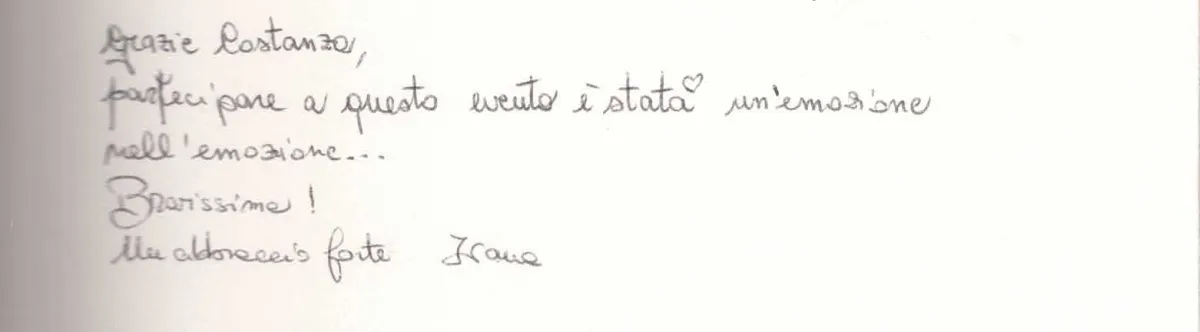 Grazie Costanza,
partecipare a questo evento è stata un'emozione
nell'emozione...
Bravissima!
Un abbraccio forte